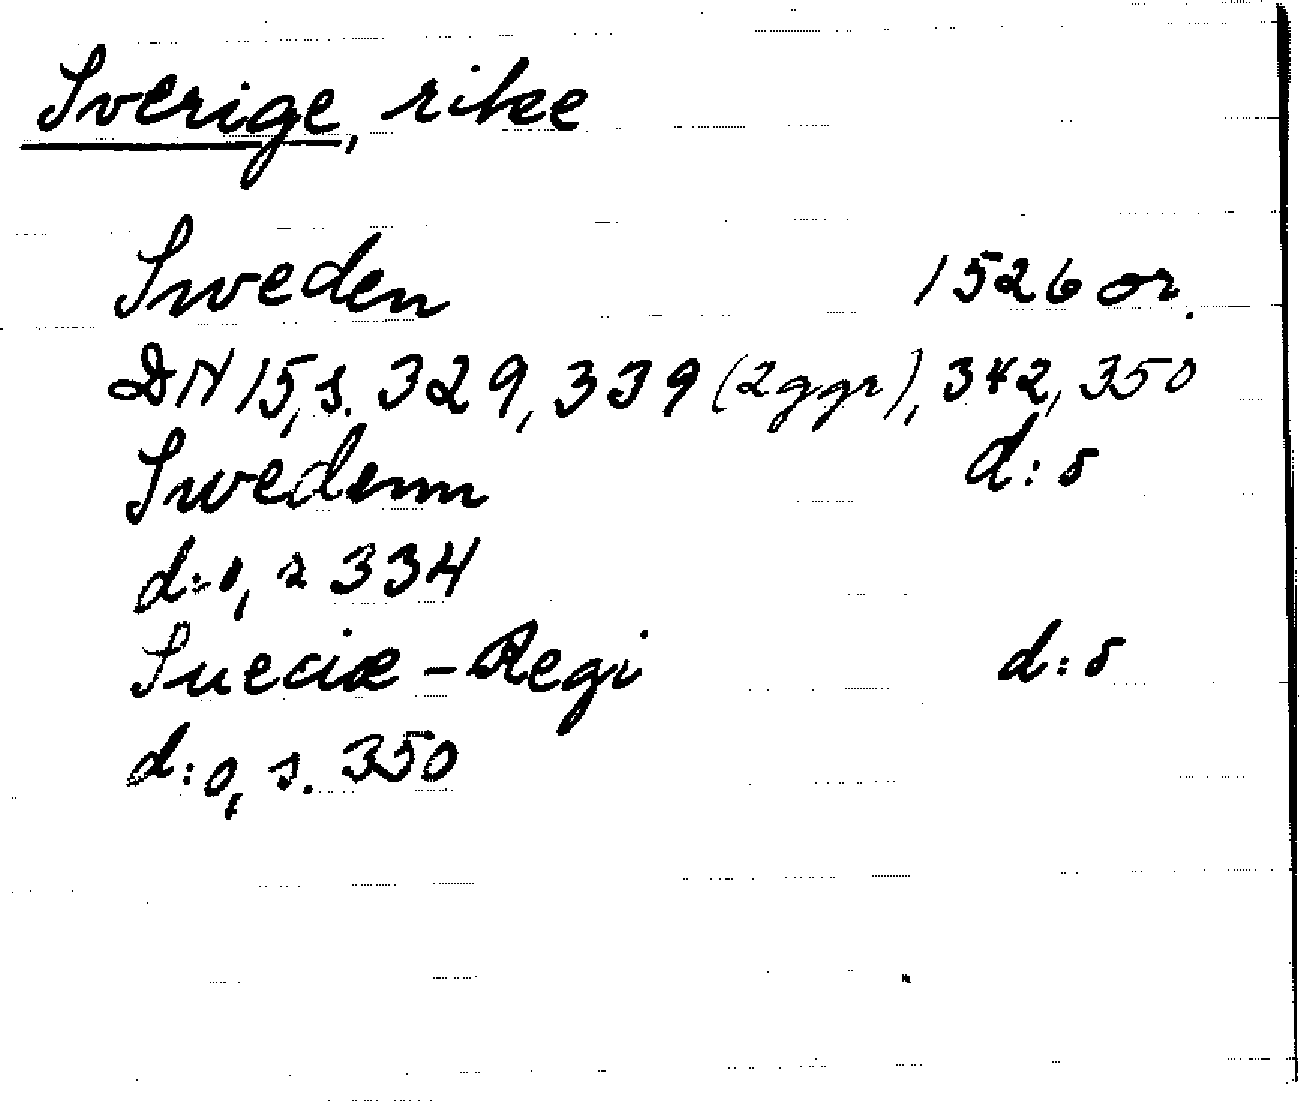 Sverige, rike
Sweden 1526 or.
DN 15, s. 329, 339 (2 ggr), 342, 350
Swedenn d:o
d:o, s 334
Sueciæ - Regi d:o
d:o, s. 350